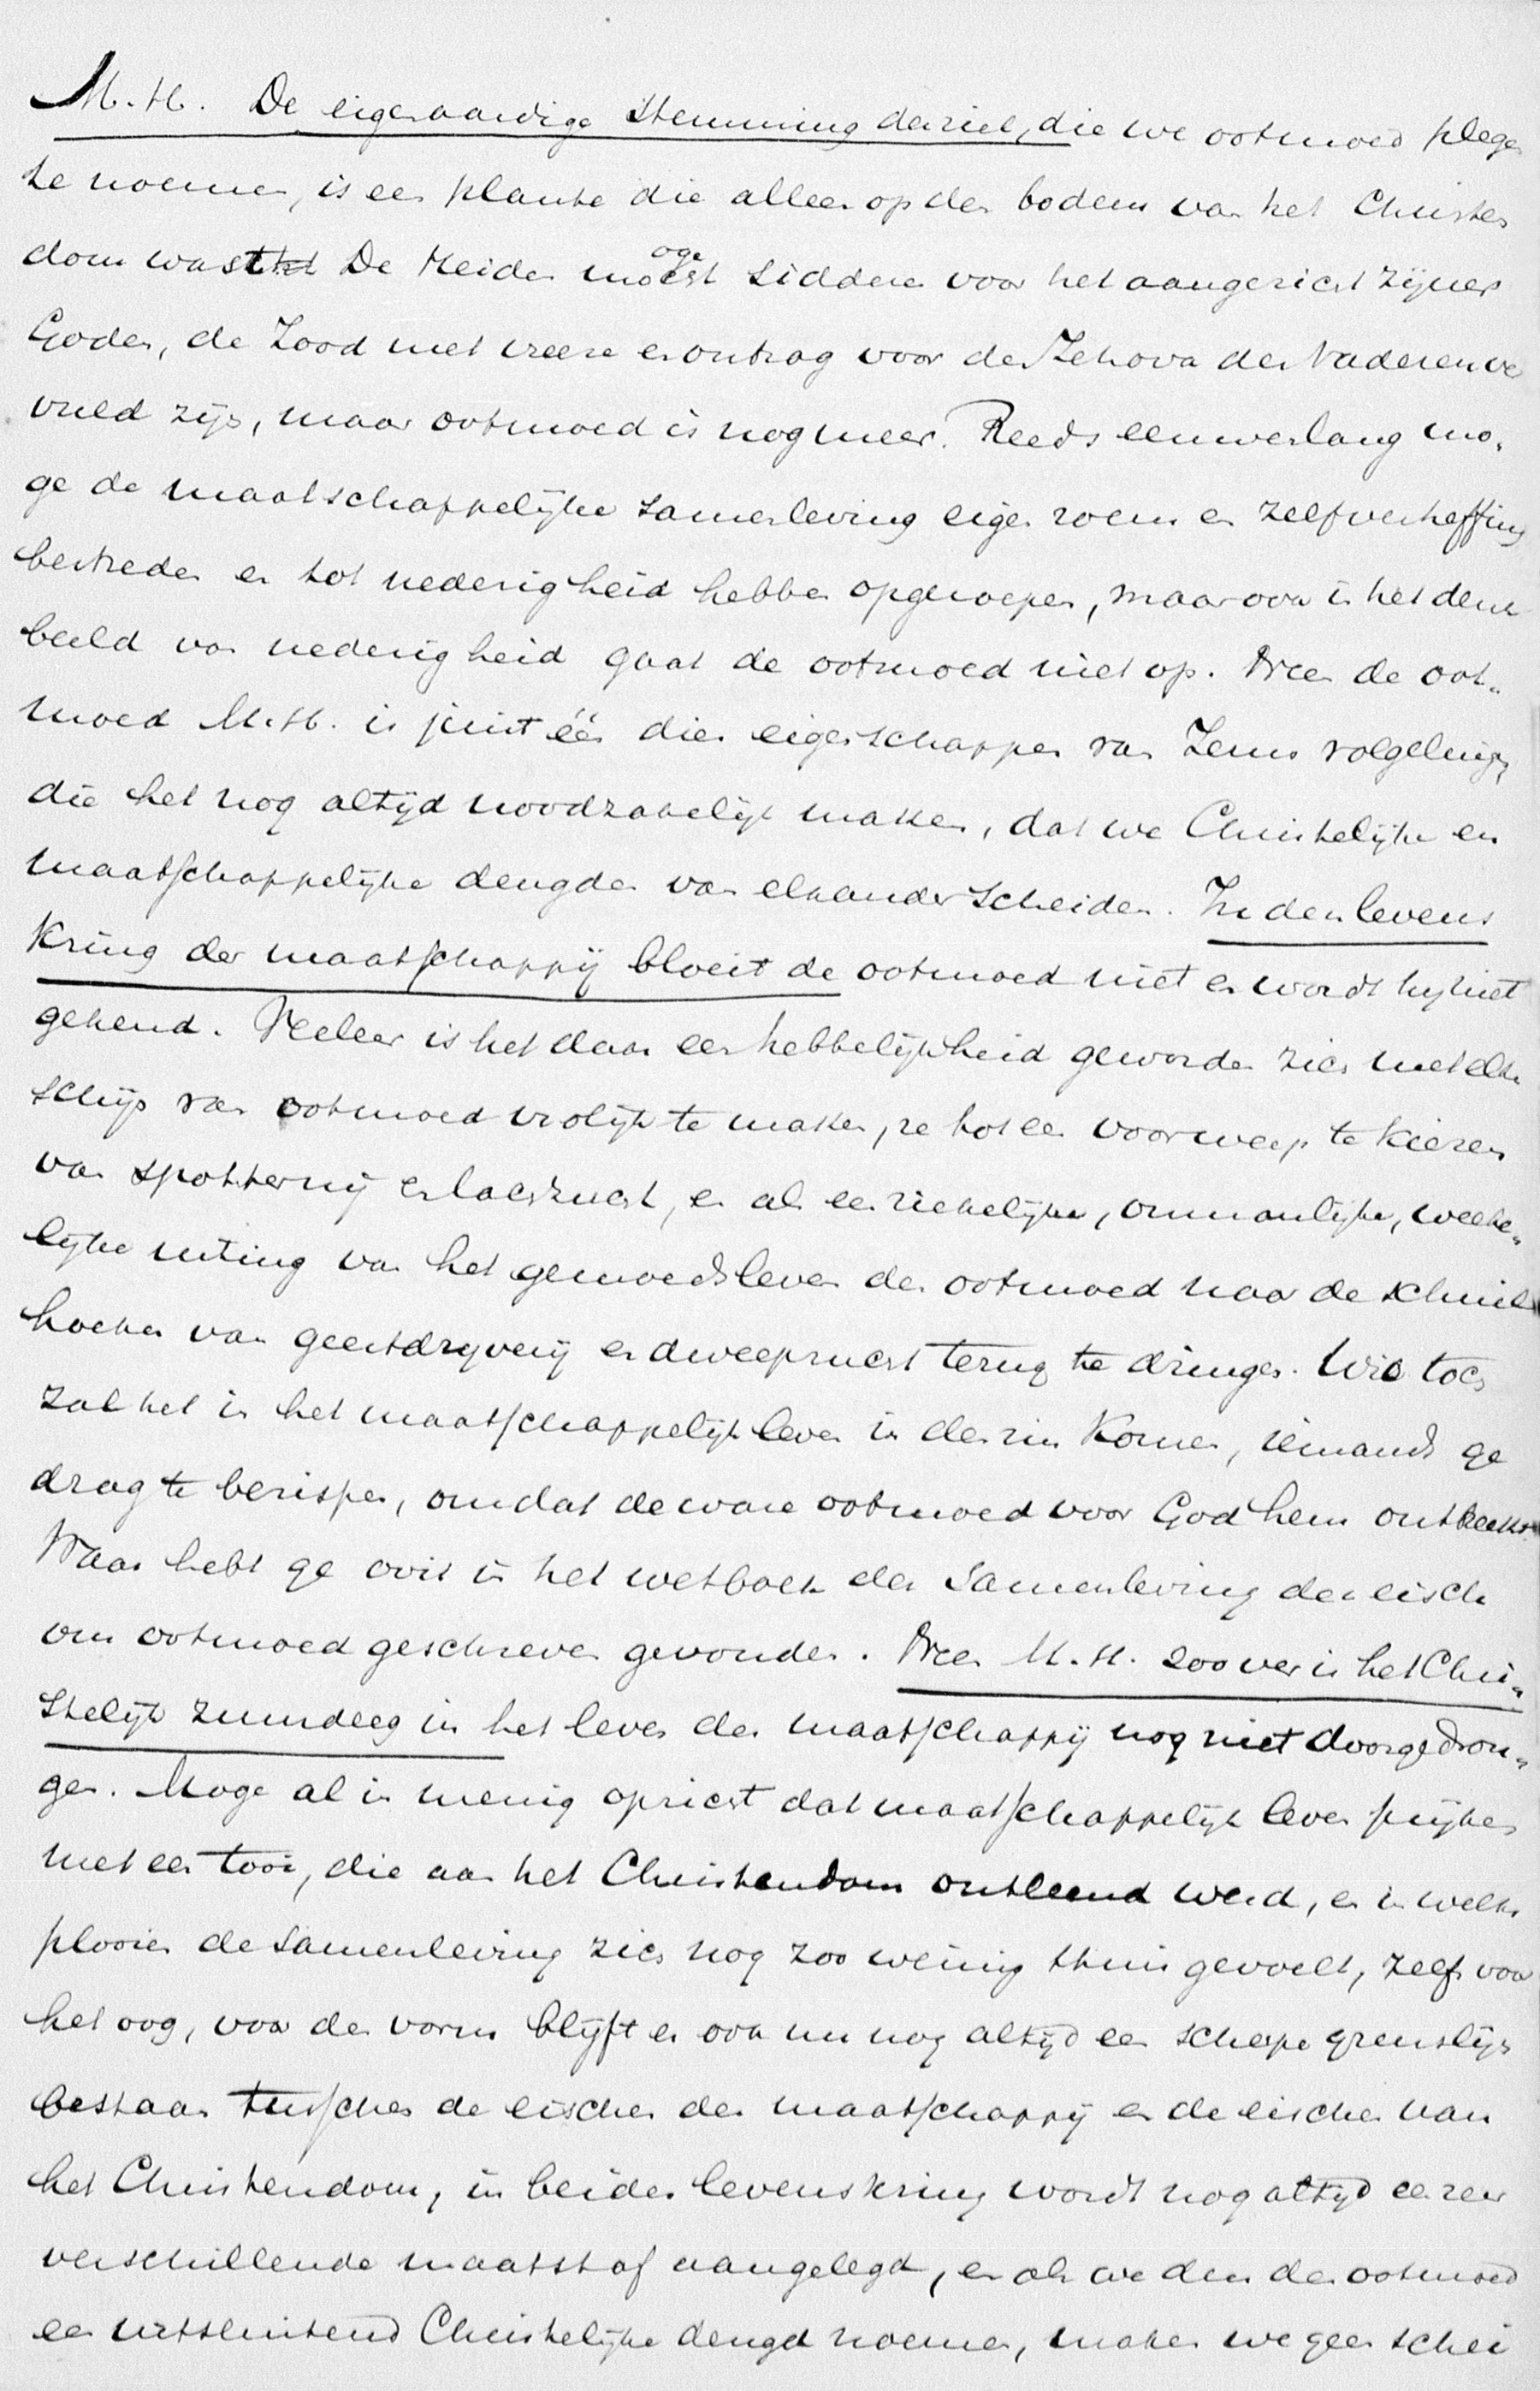 M.H. De eigenaardige stemming der ziel, die we ootmoed plegen
te noemen, is een plante die alleen op den bodem van het Christen
dom wast De Heiden moge sidderen voor het aangezicht zijner
Goden, de Jood met vreeze en ontzag voor den Jehova der Vaderen ver
vuld zijn, maar ootmoed is nog meer. Reeds eeuwenlang mo-
ge de maatschappelijke samenleving eigen roem en zelfverheffing
bestreden en tot nederigheid hebben opgeroepen, maar ook in het denk
beeld van nederigheid gaat de ootmoed niet op. Neen de oot-
moed M.H. is juist één dier eigenschappen van Jezus volgelingen,
die het nog altijd noodzakelijk maken, dat we Christelijke en
maatschappelijke deugden van elkander scheiden. In den levens
kring der maatschappij bloeit de ootmoed niet en wordt hij niet
gekend. Veeleer is het daar een hebbelijkheid geworden zich met elken
schijn van ootmoed vrolijk te maken, ze tot een voorwerp te kiezen
van spotternij en lachzucht, en als een ziekelijke, onmanlijke, weeke-
lijke uiting van het gemoedsleven den ootmoed naar de schuil
hoeken van geestdrijverij en dweepzucht terug te dringen. Wie toch
zal het in het maatschappelijk leven in den zin komen, iemands ge
drag te berispen, omdat de ware ootmoed voor God hem ontbreekt.
Waar hebt ge ooit in het wetboek der Samenleving den eisch
om ootmoed geschreven gevonden. Neen M.H. zoover is het Chri-
stelijk zuurdeeg in het leven der maatschappij nog niet doorgedron-
gen. Moge al in menig opzicht dat maatschappelijk leven prijken
met een tooi, die aan het Christendom ontleend werd, en in welks
plooien de samenleving zich nog zoo weinig thuis gevoelt, zelfs voor
het oog, voor den vorm blijft er ook nu nog altijd een scherpe grenslijn
bestaan tusschen de eischen der maatschappij en de eischen van
het Christendom, in beider levenskring wordt nog altijd een zeer
verschillende maatstaf aangelegd, en als we dan den ootmoed
een uitsluitend Christelijke deugd noemen, maken we geen schei